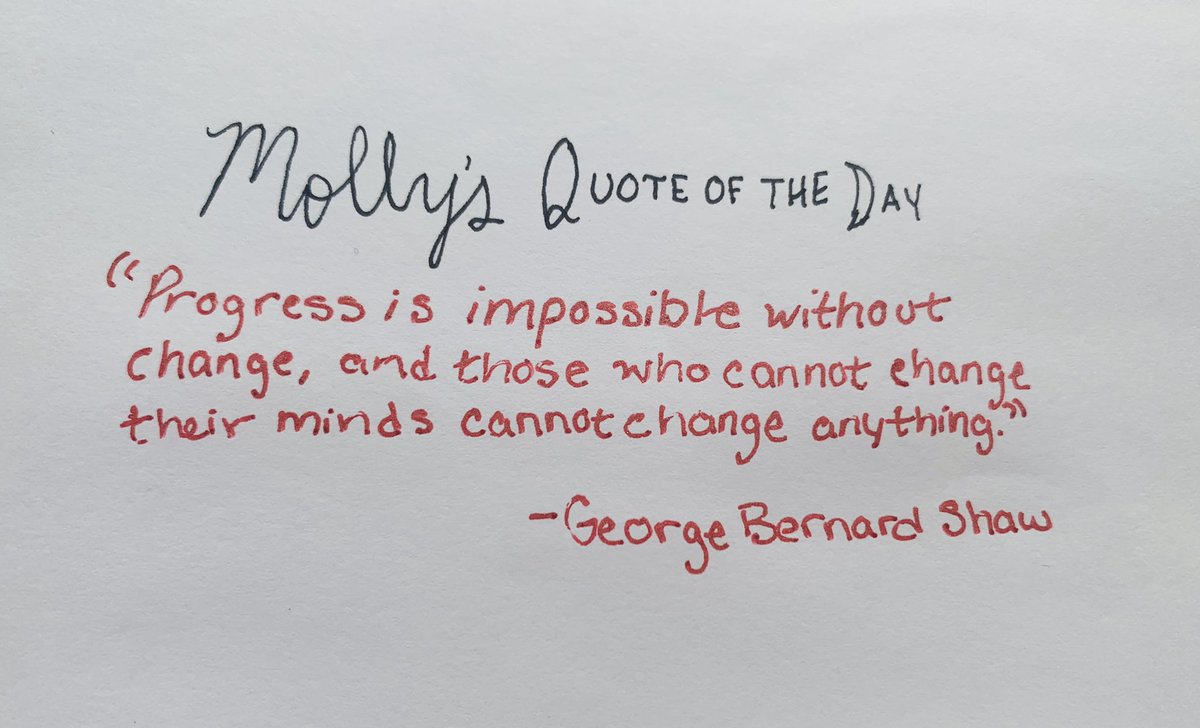 Molly's Quote of the Day
"Progress is impossible without
change, and those who cannot change
their minds cannot change anything."
-George Bernard Shaw